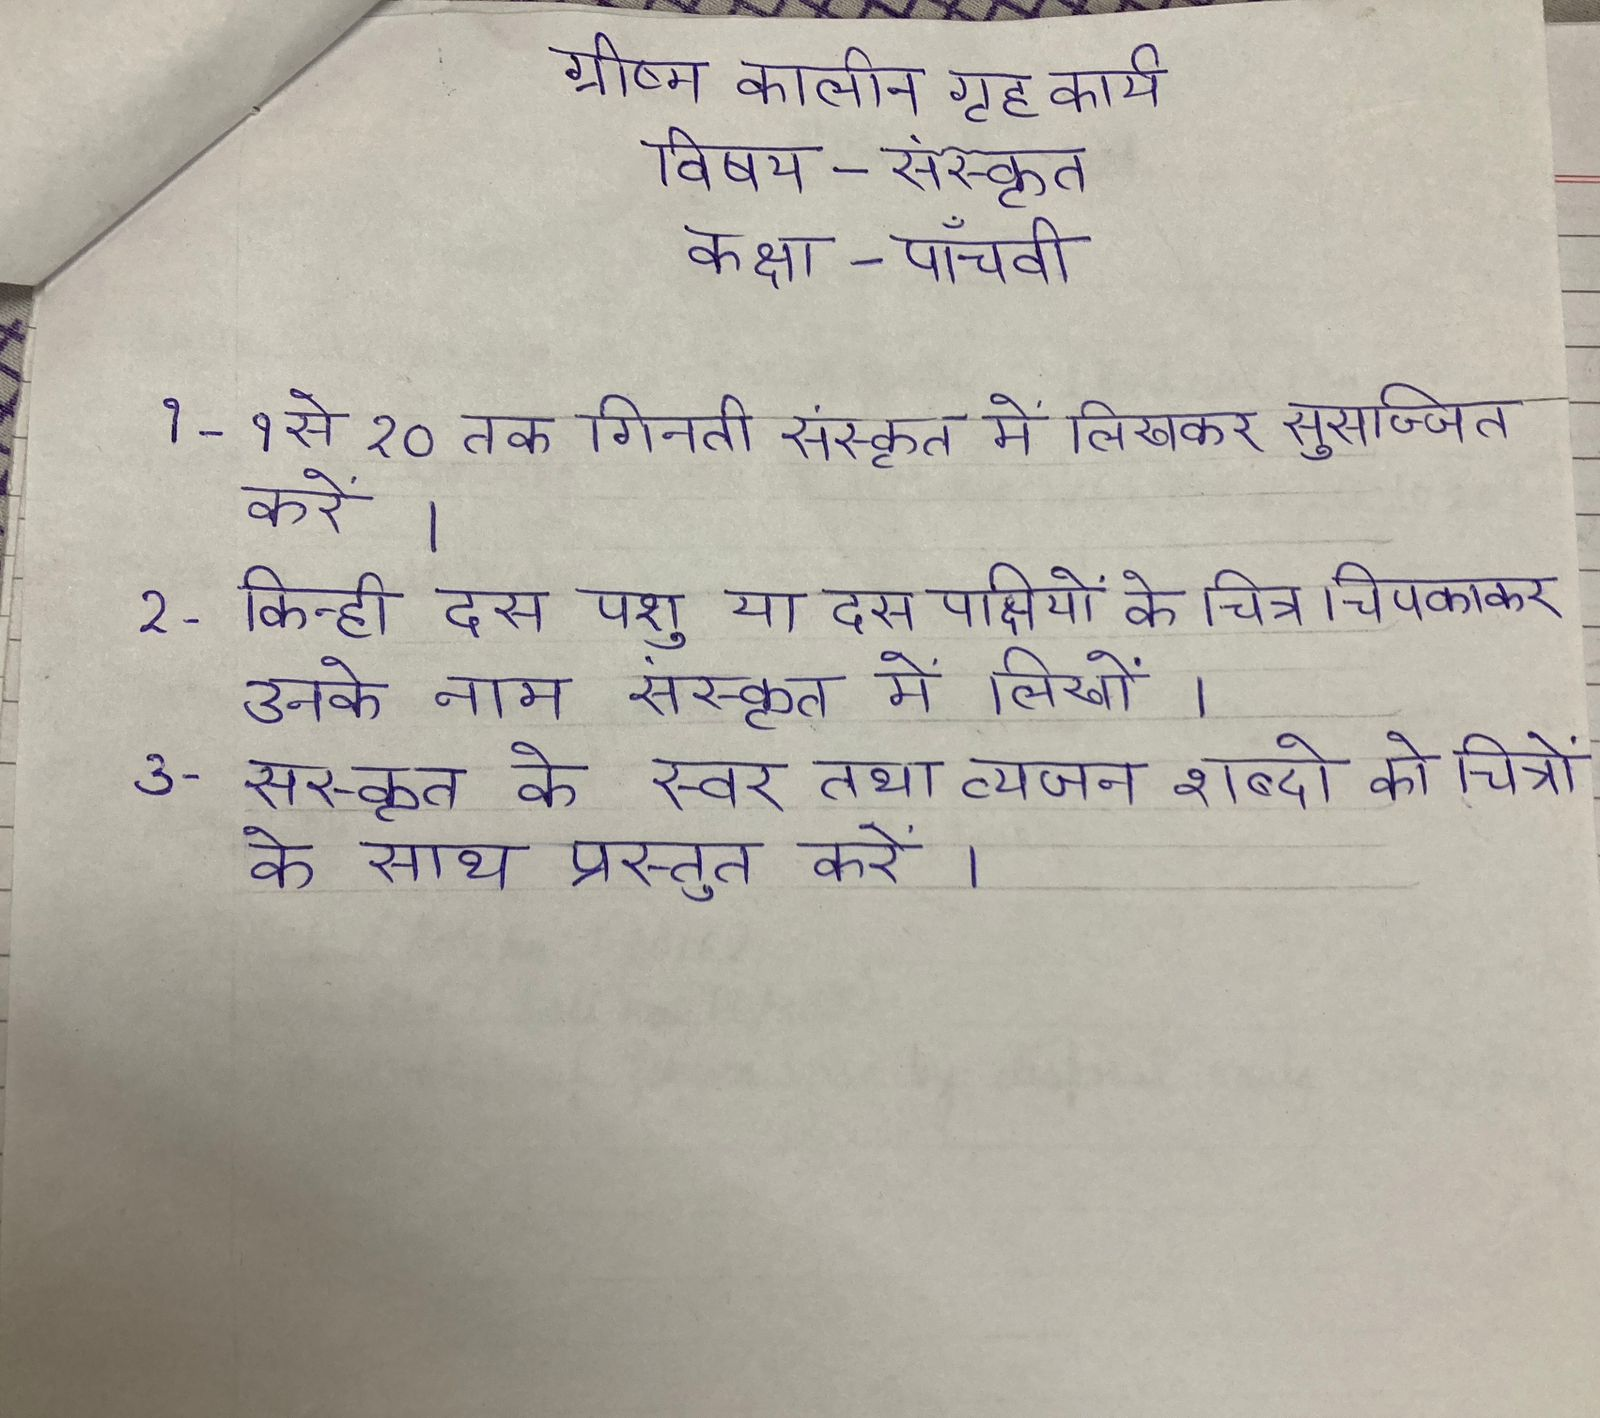 ग्रीष्म कालीन गृह कार्य
विषय - संस्कृत
कक्षा - पाँचवी
१- १से २० तक गिनती संस्कृत में लिखकर सुसज्जित
करें ।
२- किन्ही दस पशु या दस पक्षियों के चित्र चिपकाकर
उनके नाम संस्कृत में लिखों ।
३- सस्कृत के स्वर तथा व्यजन शब्दो को चित्रों
के साथ प्रस्तुत करें ।